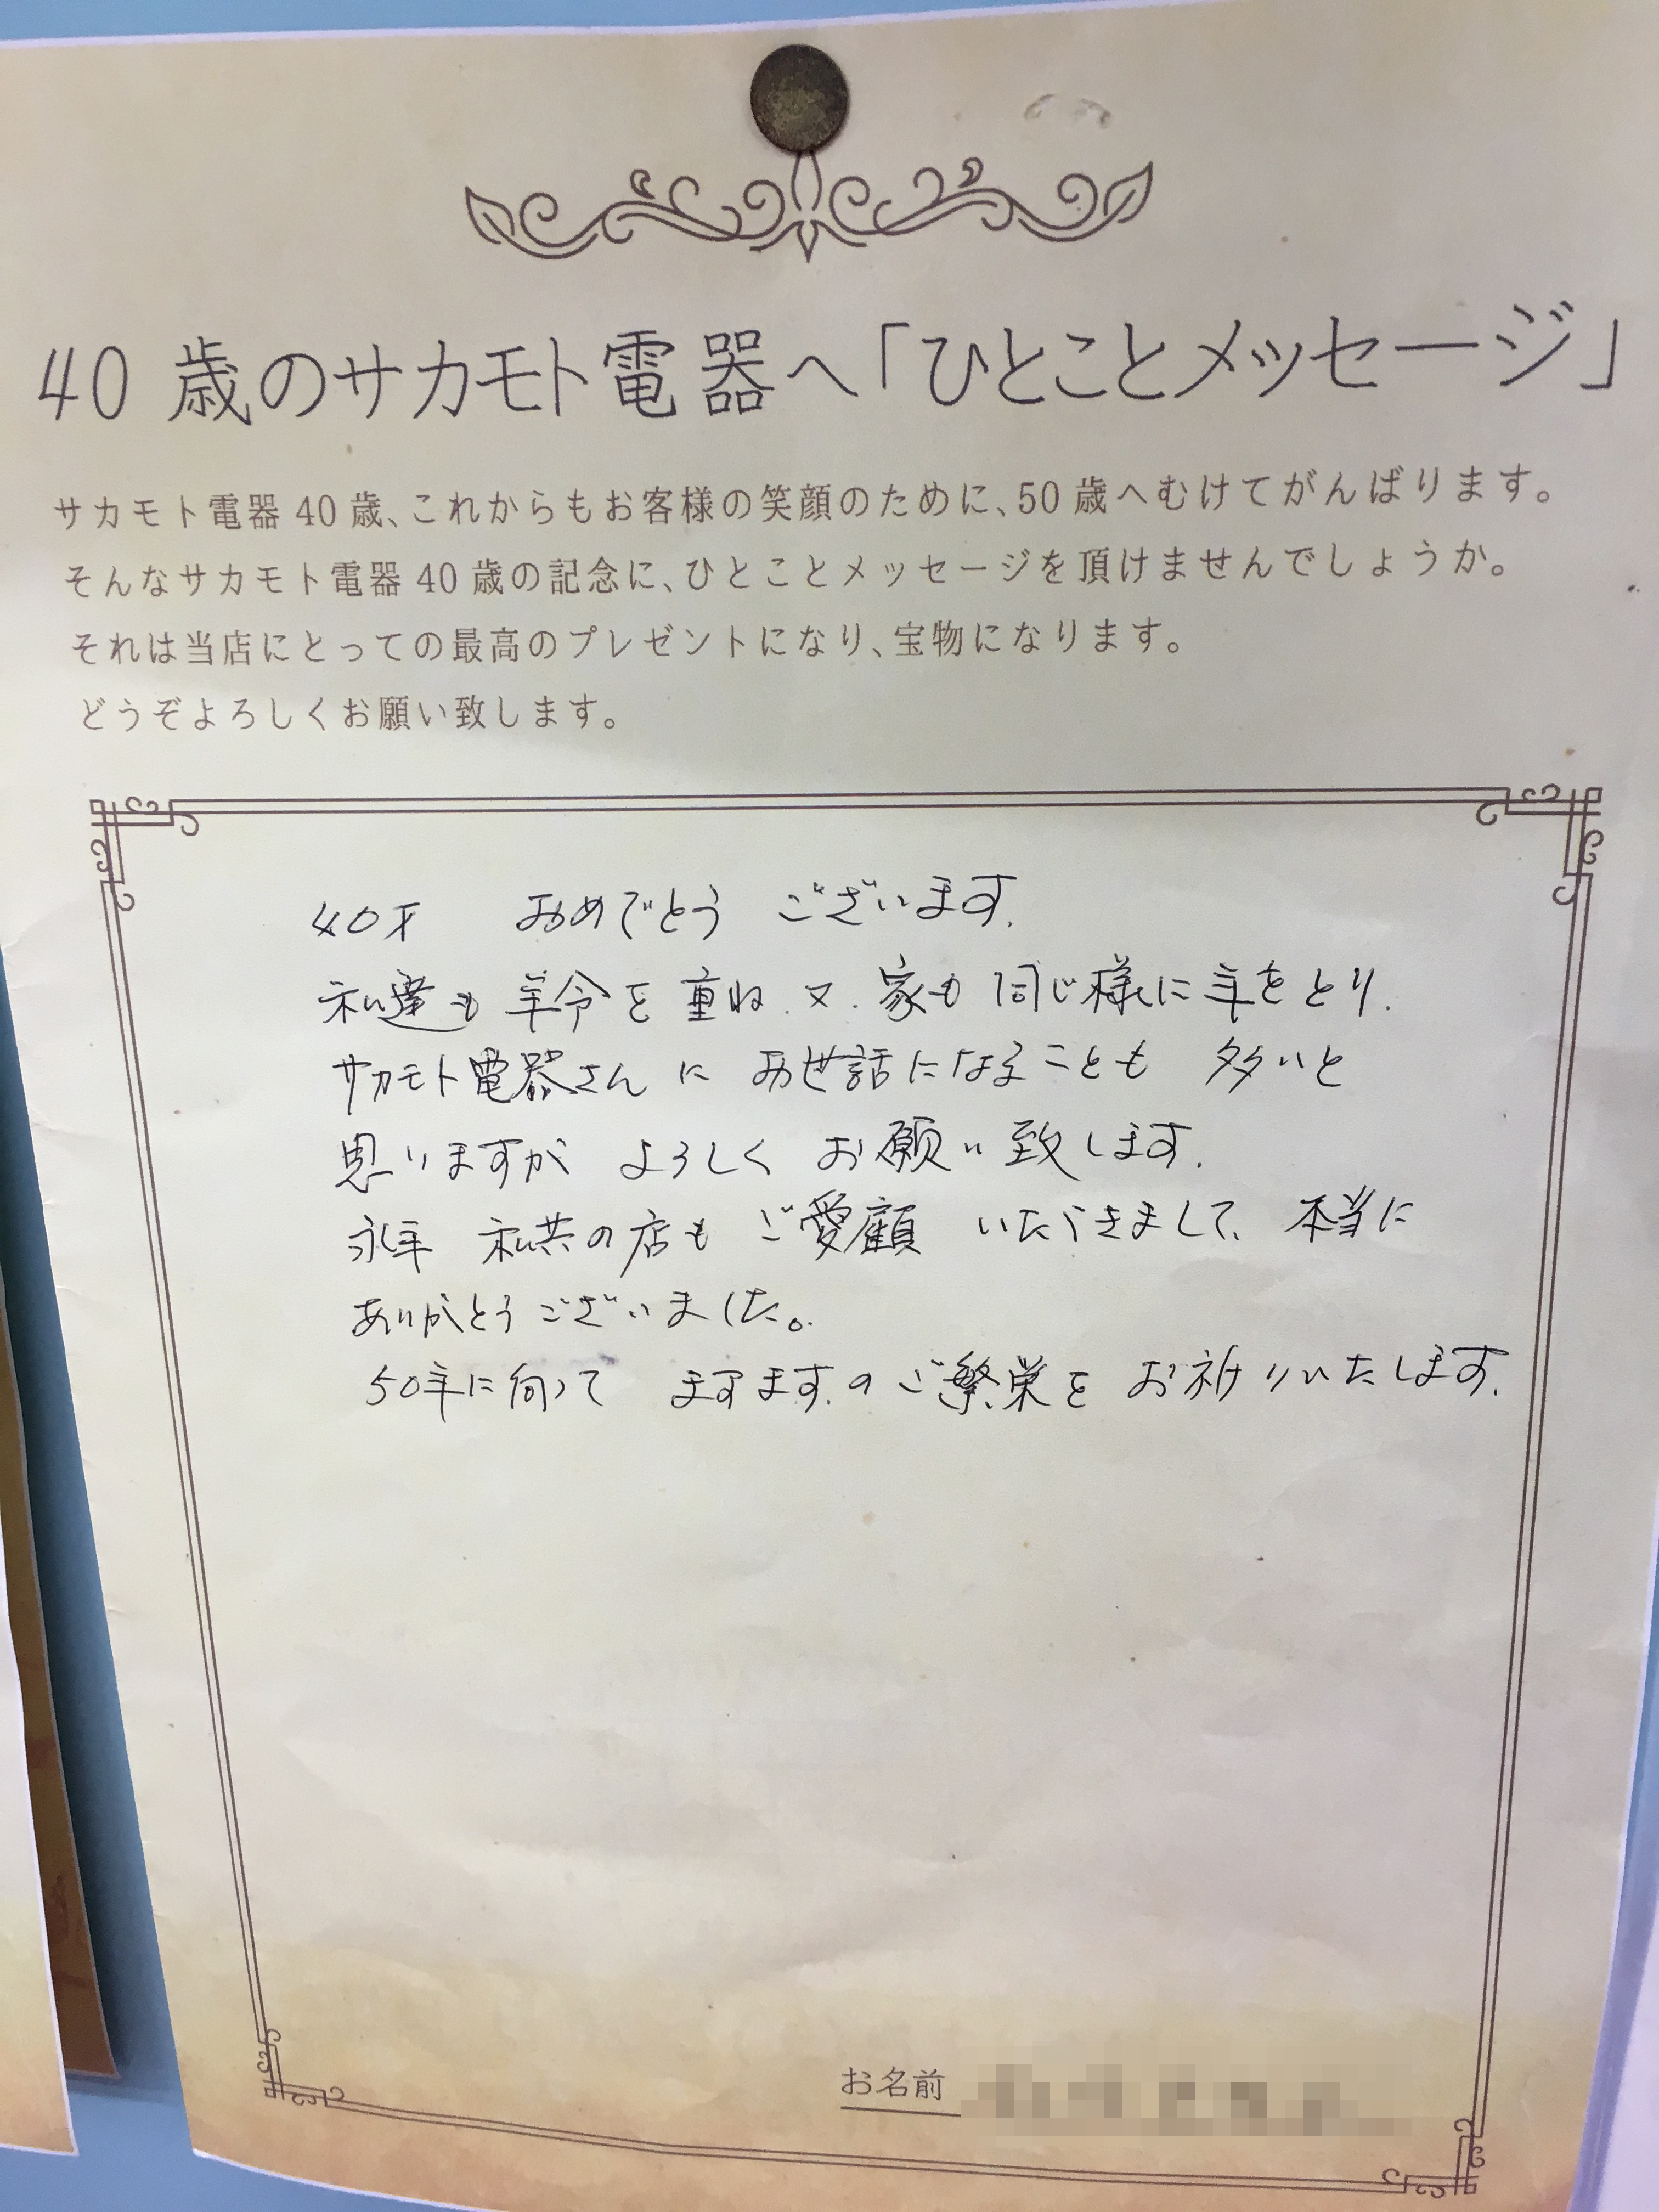 40歳のサカモト電器へ「ひとことメッセージ」
サカモト電器40歳、これからもお客様の笑顔のために、50歳へむけてがんばります。
そんなサカモト電器40歳の記念に、ひとことメッセージを頂けませんでしょうか。
それは当店にとっての最高のプレゼントになり、宝物になります。
どうぞよろしくお願い致します。
40才 おめでとう ございます.
私達も 年令を 重ね. 又. 家も 同じ様に年をとり.
サカモト電器さん に お世話になることも 多いと
思いますが よろしく お願い致します.
永年 私共の店も ご愛顧 いただきまして、本当に
ありがとうございました。
50年に向って ますます.のご繁栄を お祈りいたします.
お名前